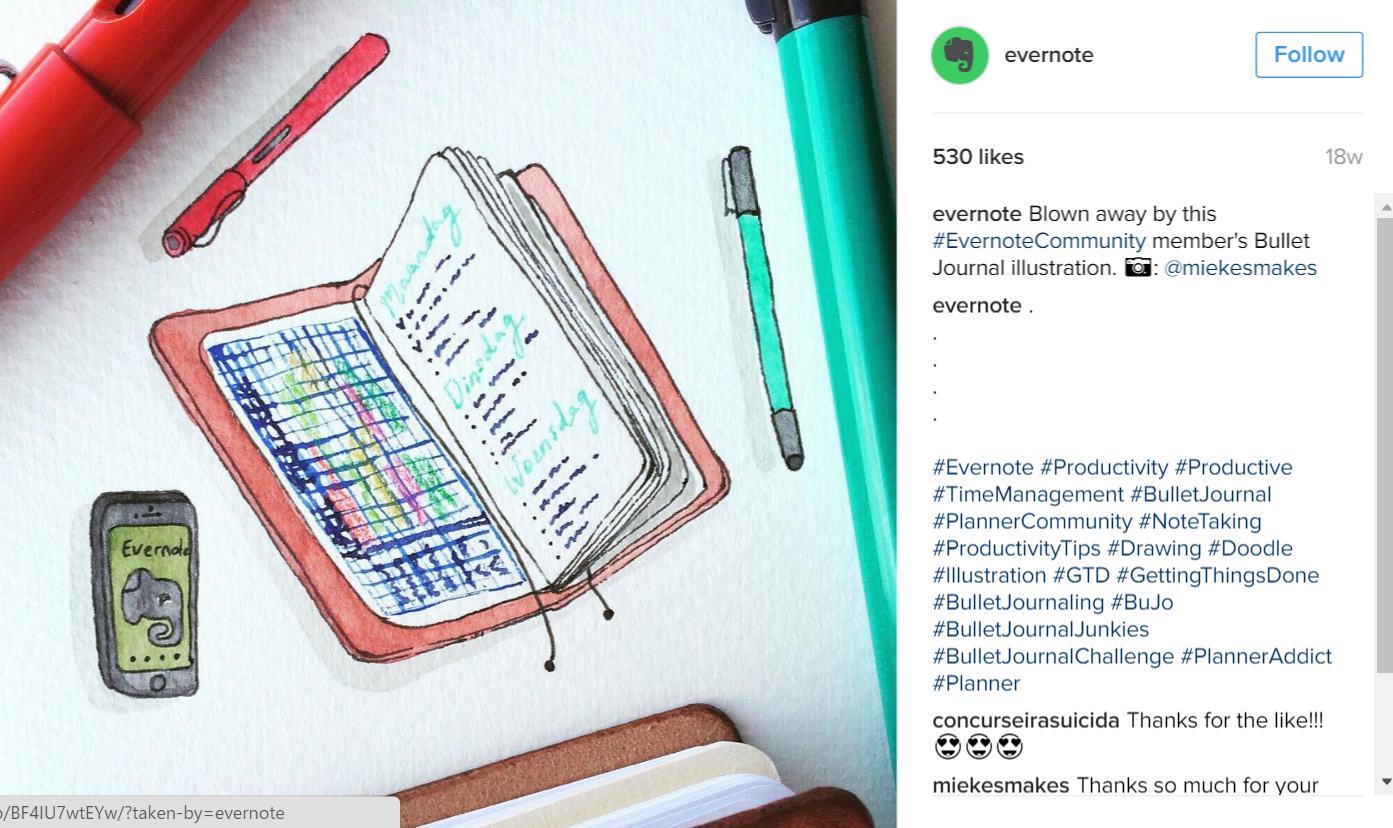 Maandag
Dinsdag
Woensdag
Evernote
evernote
Follow
530 likes
18w
evernote Blown away by this
#EvernoteCommunity member's Bullet
Journal illustration. 📷: @miekesmakes
evernote .
.
.
.
.
#Evernote #Productivity #Productive
#TimeManagement #BulletJournal
#PlannerCommunity #NoteTaking
#ProductivityTips #Drawing #Doodle
#Illustration #GTD #GettingThingsDone
#BulletJournaling #BuJo
#BulletJournalJunkies
#BulletJournalChallenge #PlannerAddict
#Planner
concurseirasuicida Thanks for the like!!!
😍😍😍
miekesmakes Thanks so much for your
/BF4IU7wtEYw/?taken-by=evernote